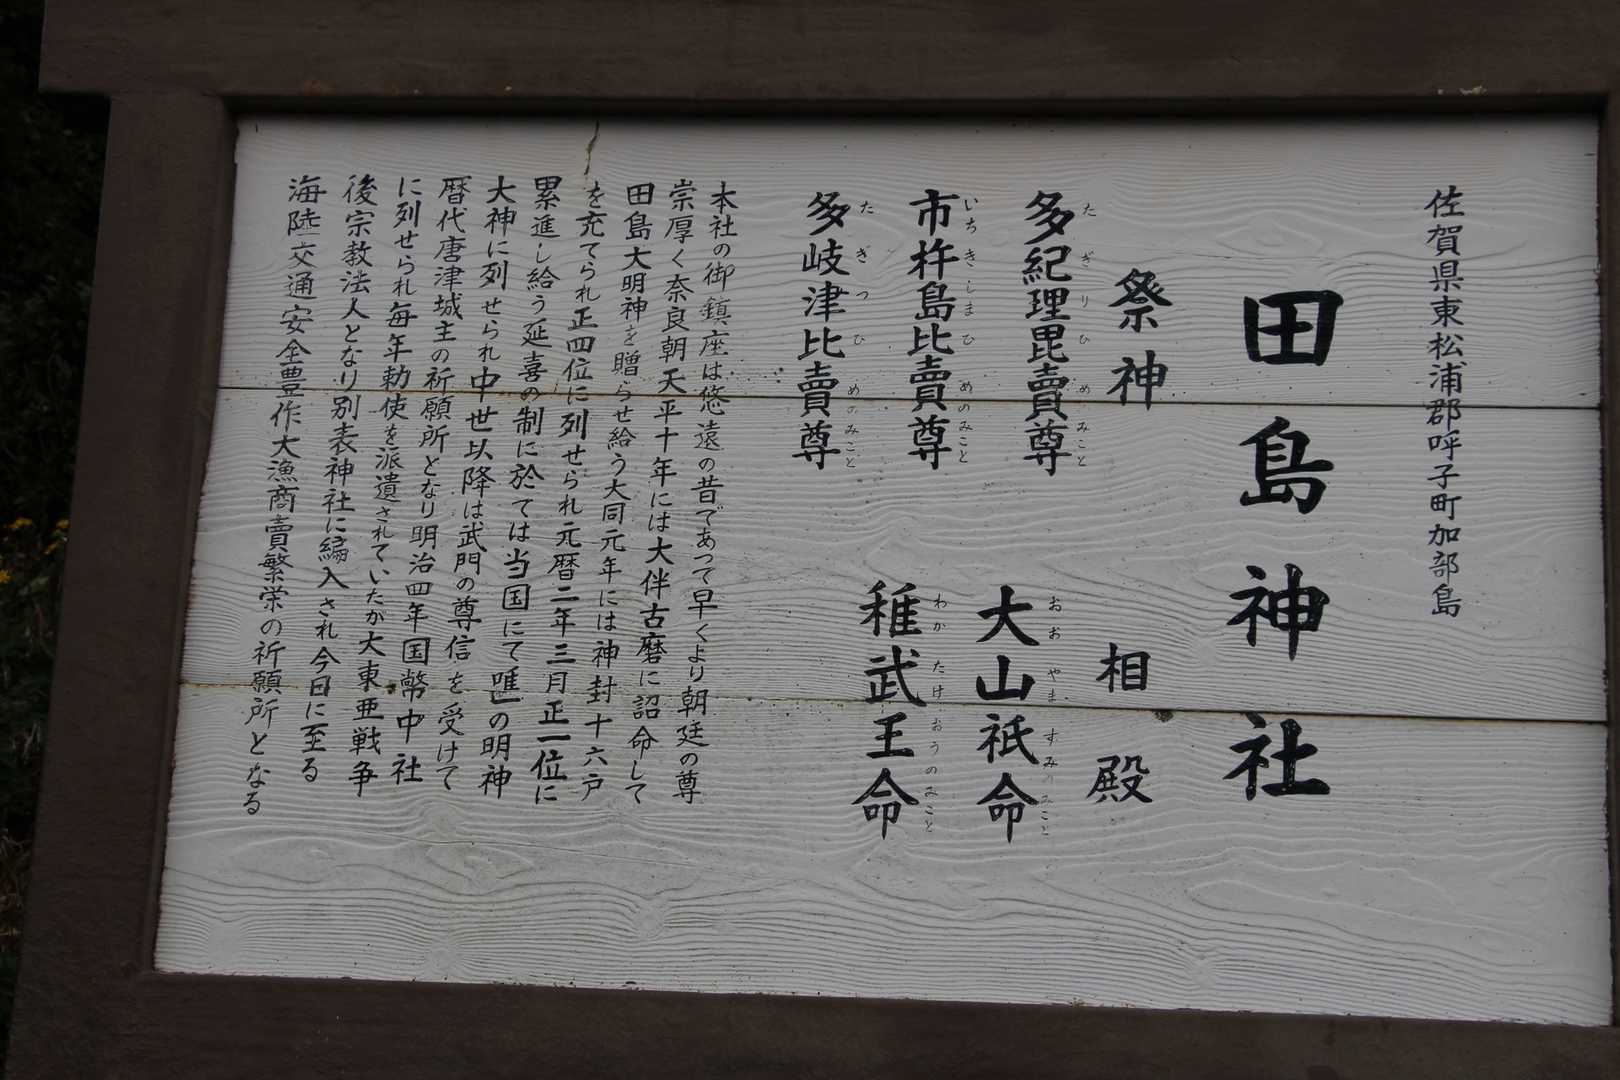 佐賀県東松浦郡呼子町加部島
田島神社
祭神
多紀理毘賣尊
たぎりひめのみこと
市杵島比賣尊
いちきしまひめのみこと
多岐津比賣尊
たぎつひめのみこと
相殿
大山祇命
おおやますみのみこと
稚武王命
わかたけおうのみこと
本社の御鎮座は悠遠の昔であって早くより朝廷の尊
崇厚く奈良朝天平十年には大伴古麿に詔命して
田島大明神を贈らせ給う大同元年には神封十六戸
を充てられ正四位に列せられ元暦二年三月正一位に
累進し給う延喜の制に於ては当国にて唯一の明神
大神に列せられ中世以降は武門の尊信を受けて
暦代唐津城主の祈願所となり明治四年国幣中社
に列せられ毎年勅使を派遣されていたが大東亜戦争
後宗教法人となり別表神社に編入され今日に至る
海陸交通安全豊作大漁商賣繁栄の祈願所となる